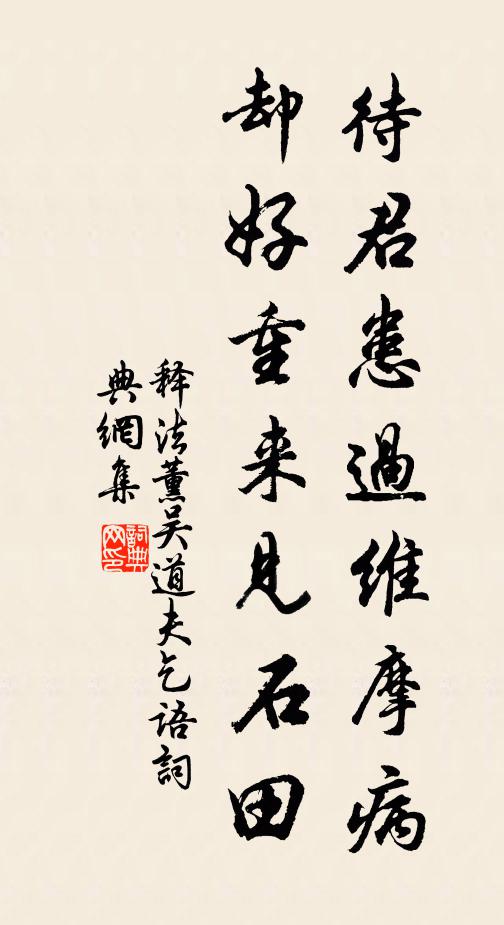 待君患過維摩病
却好重来見石田
释法薰吴道夫乞語詞
典網集
詞典網印